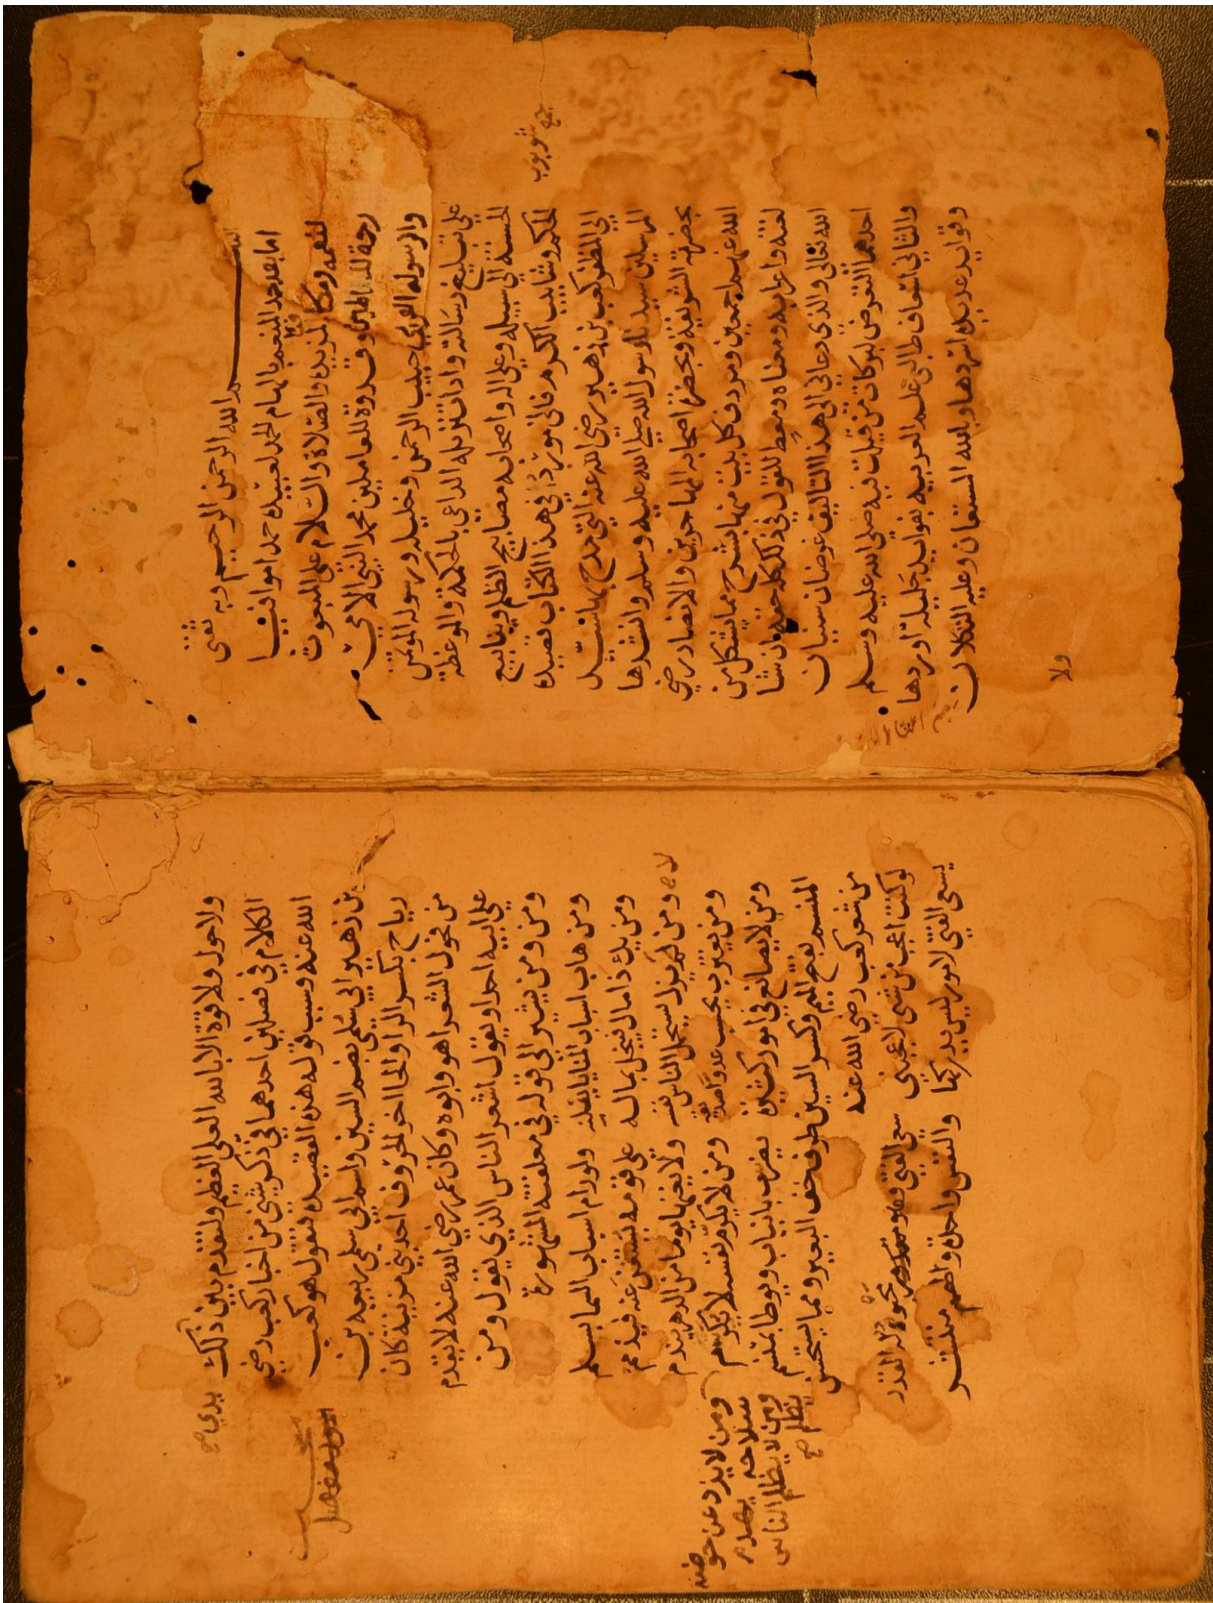 بسم الله الرحمن الرحيم وبه ثقتي
اما بعد حمد الله المنعم بالهام الحمد لعبيده حمدا موافيا
لنعمه ومكافئا لمزيده والصلاة والسلام على المبعوث
رحمة للعالمين وقدوة للعاملين محمد النبي الامي
والرسول العربي حبيب الرحمن وخليله ورسوله المؤتمن
على تبليغ رسالته واداء تنزيله الداعي بالحكمة والموعظة
الحسنة الى سبيله وعلى اله واصحابه مصابيح الظلم وينابيع
الحكم وشابيب الكرم فاني مورد في هذا الكتاب قصيدة
ابي المضرب كعب بن زهير رضي الله عنه التي مدح بها سيد
المرسلين سيدنا رسول الله صلى الله عليه وسلم وانشدها
بحضرته الشريفة وبحضرة اصحابه المهاجرين والانصار رضي
الله عنهم اجمعين ومردف كل بيت منها بشرح ما يشكل من
لغته واعرابه ومعناه ومعط للقول في ذلك كله حقه ان شا
الله تعالى والذي دعاني الى هذا التاليف غرضان سنيان
احدهما التعرض لبركات من قيلت فيه صلى الله عليه وسلم
والثاني اسعاف طالبي علم العربية بفوايد جليلة اوردها
وقوايد عديدة اسردها وبالله المستعان وعليه التكلان
جمع شوبوب
ولا
ولا حول ولا قوة الا بالله العلي العظيم ولنقدم بين ذلك
يدي صح
الكلام في فصلين احدهما في ذكر شئ من اخبار كعب رضي
الله عنه وسبب قوله هذه القصيدة فنقول هو كعب
بن زهير ابي سلمى بضم السين واسم ابي سلمى ربيعة بن
رياح بكسر الرا والحا اخر الحروف احد بني مزينة كان
من فحول الشعرا هو وابوه وكان عمر رضي الله عنه لا يقدم
على ابيه احدا ويقول اشعر الناس الذي يقول ومن
ومن ومن يشير الى قوله في معلقته المشهورة
ومن هاب اسباب المنايا ينلنه ولو رام اسباب السما بسلم
ومن يك ذا مال فيبخل بماله على قومه يستغن عنه ويذمم
ومن لم يزل يستحمل الناس نفسه ولا يغنها يوما من الدهر يندم
ومن يغترب يحسب عدوا صديقه ومن لا يكرم نفسه لا يكرم
ومن لا يذد عن حوضه
بسلاحه يهدم
ومن لا يظلم الناس
يظلم صح
ومن لا يصانع في امور كثيرة يضرس بانياب ويوطا بمنسم
المنسم بفتح الميم وكسر السين طرف خف البعير ومما يستحسن
من شعر كعب رضي الله عنه
لو كنت اعجب من شئ لاعجبني سعي الفتى وهو مخبوء له القدر
يسعى الفتى لامور ليس يدركها والنفس واحدة والهم منتشر